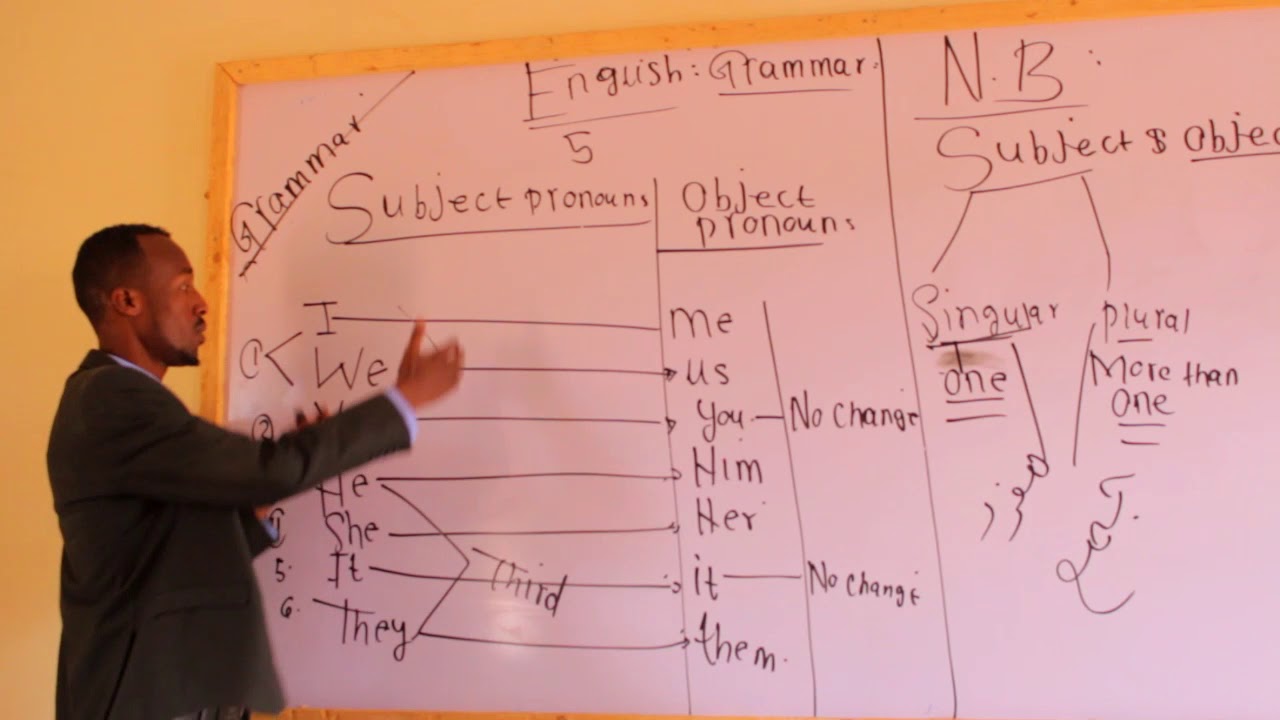 Grammar
English: Grammar.
5
Subject pronouns
Object
pronouns
① I me
We us
② you No change
He Him
She Her
5. It it No change
6. They them.
Third
N.B:
Subject & Objec
Singular
one
plural
More than
One